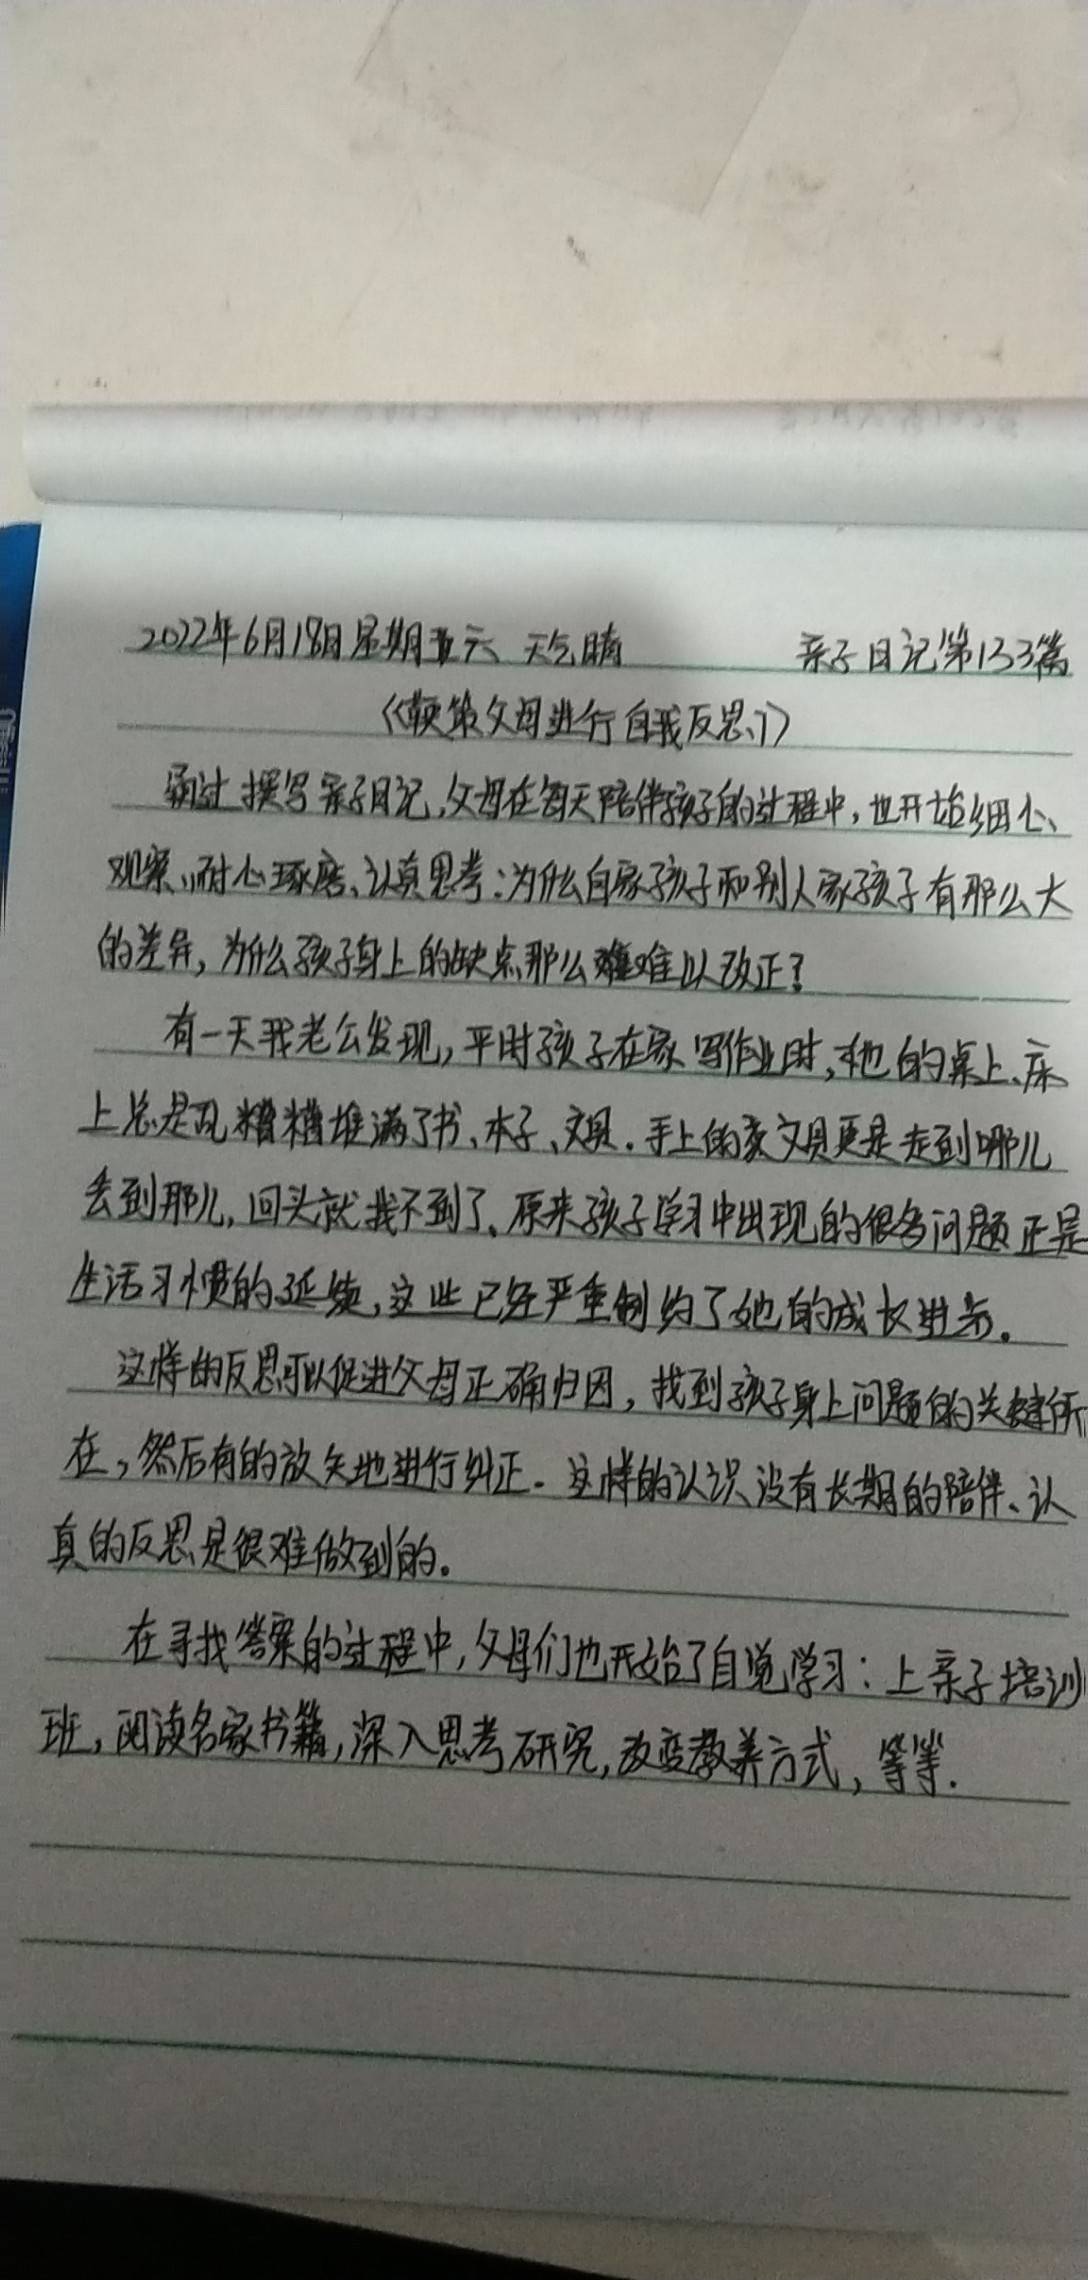 2022年6月18日星期六 天气晴 亲子日记第133篇
《鞭策父母进行自我反思》
通过撰写亲子日记,父母在每天陪伴孩子的过程中,也开始细心
观察、耐心琢磨、认真思考:为什么自家孩子和别人家孩子有那么大
的差异,为什么孩子身上的缺点那么难以改正?
有一天我老公发现,平时孩子在家写作业时,她的桌上、床
上总是乱糟糟堆满了书、本子、文具.手上的文具更是走到哪儿
丢到那儿,回头就找不到了。原来孩子学习中出现的很多问题正是
生活习惯的延续,这些已经严重制约了她的成长进步。
这样的反思可以促进父母正确归因,找到孩子身上问题的关键所
在,然后有的放矢地进行纠正.这样的认识没有长期的陪伴、认
真的反思是很难做到的。
在寻找答案的过程中,父母们也开始了自觉学习:上亲子培训
班,阅读名家书籍,深入思考研究,改变教养方式,等等.